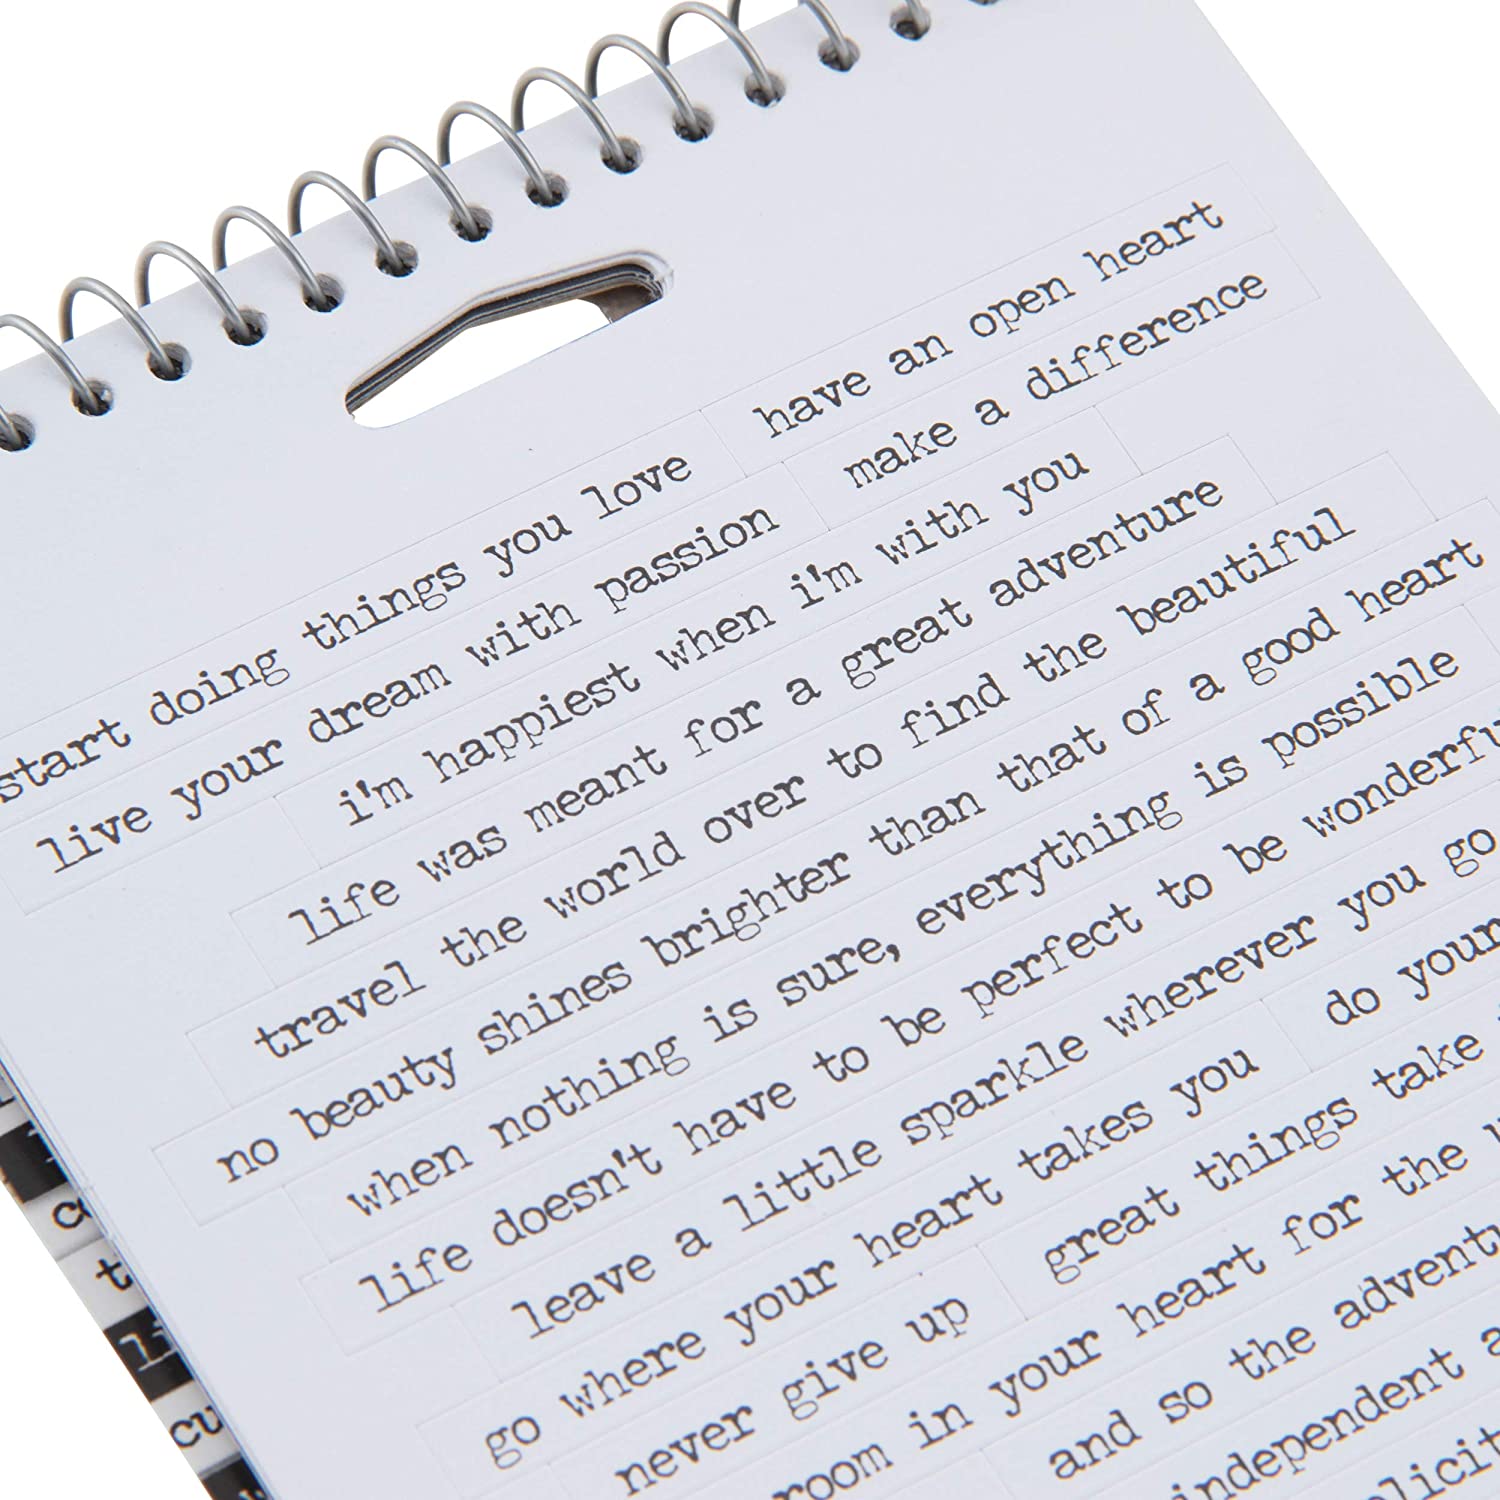 start doing things you love
have an open heart
live your dream with passion
make a difference
i'm happiest when i'm with you
life was meant for a great adventure
travel the world over to find the beautiful
no beauty shines brighter than that of a good heart
when nothing is sure, everything is possible
life doesn't have to be perfect to be
leave a little sparkle wherever you go
go where your heart takes you
do your
never give up
great things take
room in your heart for the
and so the
independent